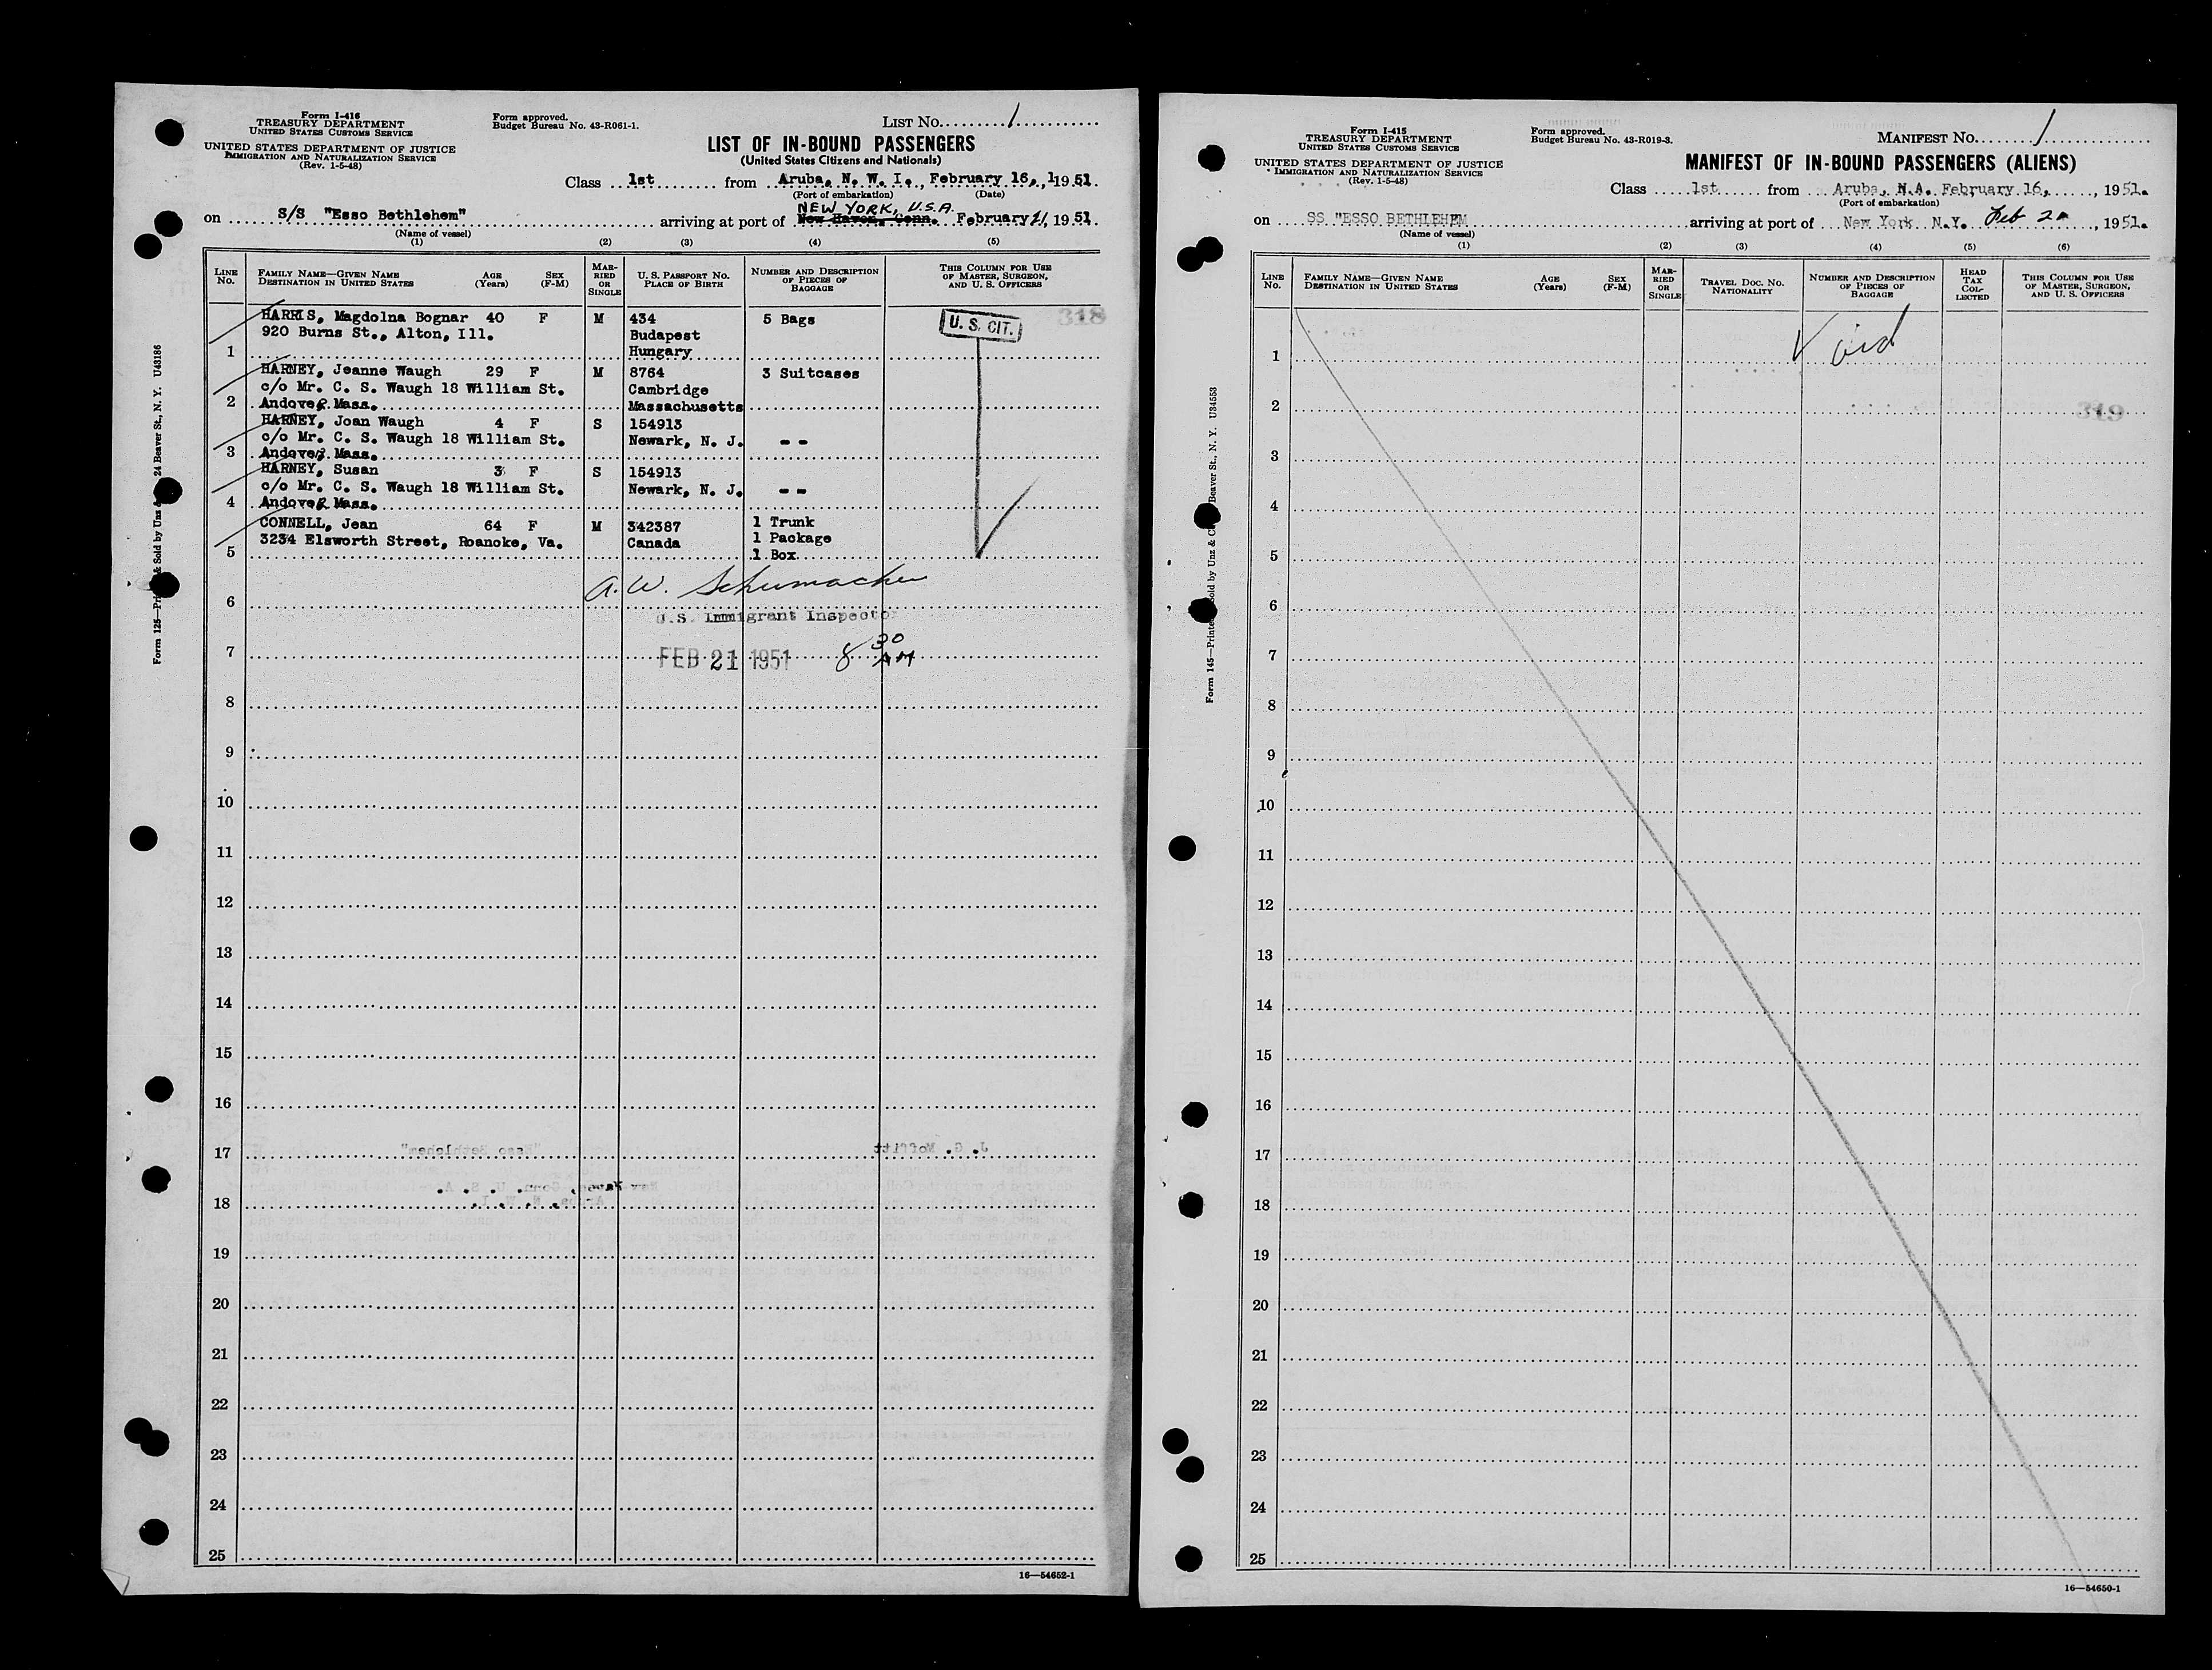 Form I-416
TREASURY DEPARTMENT
UNITED STATES CUSTOMS SERVICE
UNITED STATES DEPARTMENT OF JUSTICE
IMMIGRATION AND NATURALIZATION SERVICE
(Rev. 1-5-48)
Form approved.
Budget Bureau No. 43-R061-1.
LIST NO. 1
LIST OF IN-BOUND PASSENGERS
(United States Citizens and Nationals)
Class 1st from Aruba, N. W. I., February 16, 1951.
(Port of embarkation) (Date)
NEW YORK, U.S.A.
on S/S "Esso Bethlehem" arriving at port of New Haven, Conn. February 21, 1951.
(Name of vessel)
(1) (2) (3) (4) (5)
LINE NO.
FAMILY NAME—GIVEN NAME AGE SEX
DESTINATION IN UNITED STATES (Years) (F-M)
MARRIED OR SINGLE
U. S. PASSPORT NO.
PLACE OF BIRTH
NUMBER AND DESCRIPTION OF PIECES OF BAGGAGE
THIS COLUMN FOR USE OF MASTER, SURGEON, AND U. S. OFFICERS
HARRIS, Magdolna Bognar 40 F M 434 5 Bags U. S. CIT. 318
920 Burns St., Alton, Ill. Budapest
1 Hungary
HARNEY, Jeanne Waugh 29 F M 8764 3 Suitcases
c/o Mr. C. S. Waugh 18 William St. Cambridge
2 Andover Mass. Massachusetts
HARNEY, Joan Waugh 4 F S 154913
c/o Mr. C. S. Waugh 18 William St. Newark, N. J. --
3 Andover Mass.
HARNEY, Susan 3 F S 154913
c/o Mr. C. S. Waugh 18 William St. Newark, N. J. --
4 Andover Mass.
CONNELL, Jean 64 F M 342387 1 Trunk
3234 Elsworth Street, Roanoke, Va. Canada 1 Package
5 1 Box
A. W. Schumacher
6
U.S. Immigrant Inspector
7 FEB 21 1951 8 30 AM
8
9
10
11
12
13
14
15
16
17 "Esso Bethlehem" J. G. Moffitt
New Haven, Conn. U. S. A.
18 Aruba, N. W. I.
19
20
21
22
23
24
25
16—54652-1
24 Beaver St., N. Y. U43186
Form 415
TREASURY DEPARTMENT
UNITED STATES CUSTOMS SERVICE
UNITED STATES DEPARTMENT OF JUSTICE
IMMIGRATION AND NATURALIZATION SERVICE
(Rev. 1-5-48)
Form approved.
Budget Bureau No. 43-R019-3.
MANIFEST NO. 1
MANIFEST OF IN-BOUND PASSENGERS (ALIENS)
Class 1st from Aruba, N.A. February 16, 1951.
(Port of embarkation)
on SS "ESSO BETHLEHEM arriving at port of New York N.Y. Feb , 1951.
(Name of vessel)
(1) (2) (3) (4) (5) (6)
LINE NO.
FAMILY NAME—GIVEN NAME AGE SEX
DESTINATION IN UNITED STATES (Years) (F-M)
MARRIED OR SINGLE
TRAVEL DOC. NO.
NATIONALITY
NUMBER AND DESCRIPTION OF PIECES OF BAGGAGE
HEAD TAX COLLECTED
THIS COLUMN FOR USE OF MASTER, SURGEON, AND U. S. OFFICERS
1 Void
2 319
3
4
5
6
7
8
9
10
11
12
13
14
15
16
17
18
19
20
21
22
23
24
25
16—54650-1
Beaver St., N. Y. U34553